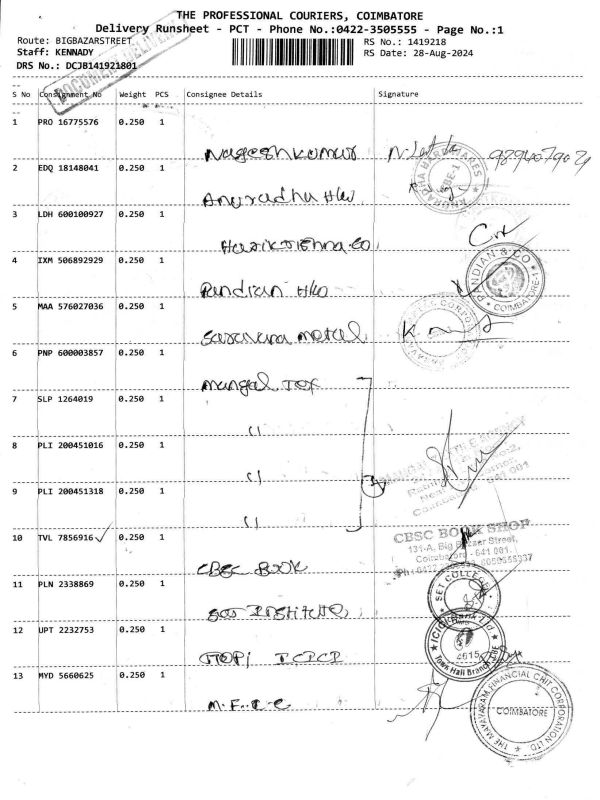 THE PROFESSIONAL COURIERS, COIMBATORE
Delivery Runsheet - PCT - Phone No.:0422-3505555 - Page No.:1
Route: BIGBAZARSTREET
RS No.: 1419218
Staff: KENNADY
RS Date: 28-Aug-2024
DRS No.: DCJB141921801
S No Consignment No Weight PCS Consignee Details Signature
1 PRO 16775576 0.250 1
Nageshkumar
2 EDQ 18148041 0.250 1
Anuradha
3 LDH 600100927 0.250 1
4 IXM 506892929 0.250 1
Pandian
PANDIAN & CO
COIMBATORE-1
5 MAA 576027036 0.250 1
Saravana metal
6 PNP 600003857 0.250 1
mangal
7 SLP 1264019 0.250 1
"
8 PLI 200451016 0.250 1
"
9 PLI 200451318 0.250 1
"
10 TVL 7856916 0.250 1
CBSC BOOK
CBSC BOOK SHOP
131-A, Big Bazaar Street,
Coimbatore - 641 001.
11 PLN 2338869 0.250 1
Institute
SET COLLEGE
12 UPT 2232753 0.250 1
ICICI Bank Ltd
Town Hall Branch
13 MYD 5660625 0.250 1
THE MAYAVARAM FINANCIAL CHIT CORPORATION LTD.
COIMBATORE